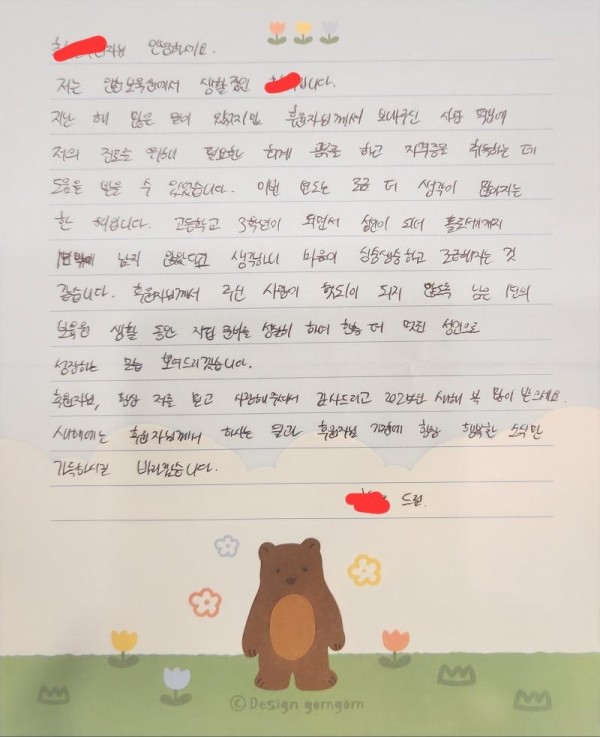 후원자님 안녕하세요.
저는 보육원에서 생활중인 입니다.
지난 해 많은 일이 있었지만 후원자님께서 보내주신 사랑 덕분에
저의 진로를 위해 필요한 학계 공부를 하고 자격증을 취득하는 데
도움을 받을 수 있었습니다. 이번 년도는 조금 더 생각이 많아지는
한 해입니다. 고등학교 3학년이 되면서 성인이 되어 홀로서기까지
1년 밖에 남지 않았다고 생각하니 마음이 싱숭생숭하고 조급해지는 것
같습니다. 후원자님께서 주신 사랑이 헛되이 되지 않도록 남은 1년의
보육원 생활 동안 직업 준비를 성실히 하여 한층 더 멋진 성인으로
성장하는 모습 보여드리겠습니다.
후원자님, 항상 저를 믿고 사랑해주셔서 감사드리고 2024년 새해 복 많이 받으세요.
새해에는 후원자님께서 하시는 일과 후원자님 가정에 항상 행복한 소식만
가득하시길 바라겠습니다.
드림.
© Design gomgom